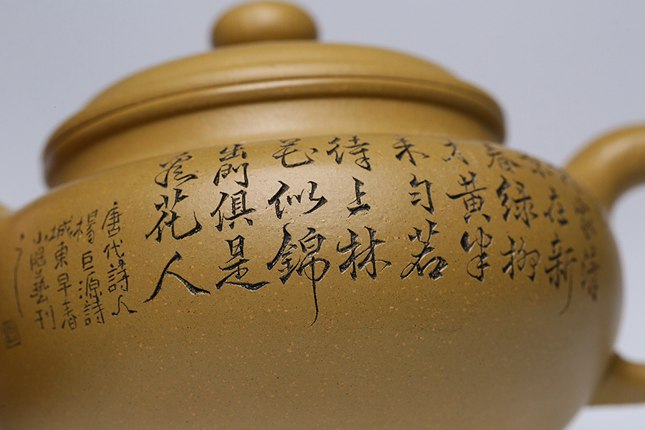 家清
景在新
春綠柳
才黃半
未勻若
待上林
花似錦
出門俱是
看花人
唐代詩人
楊巨源詩
城東早春
小藝刊